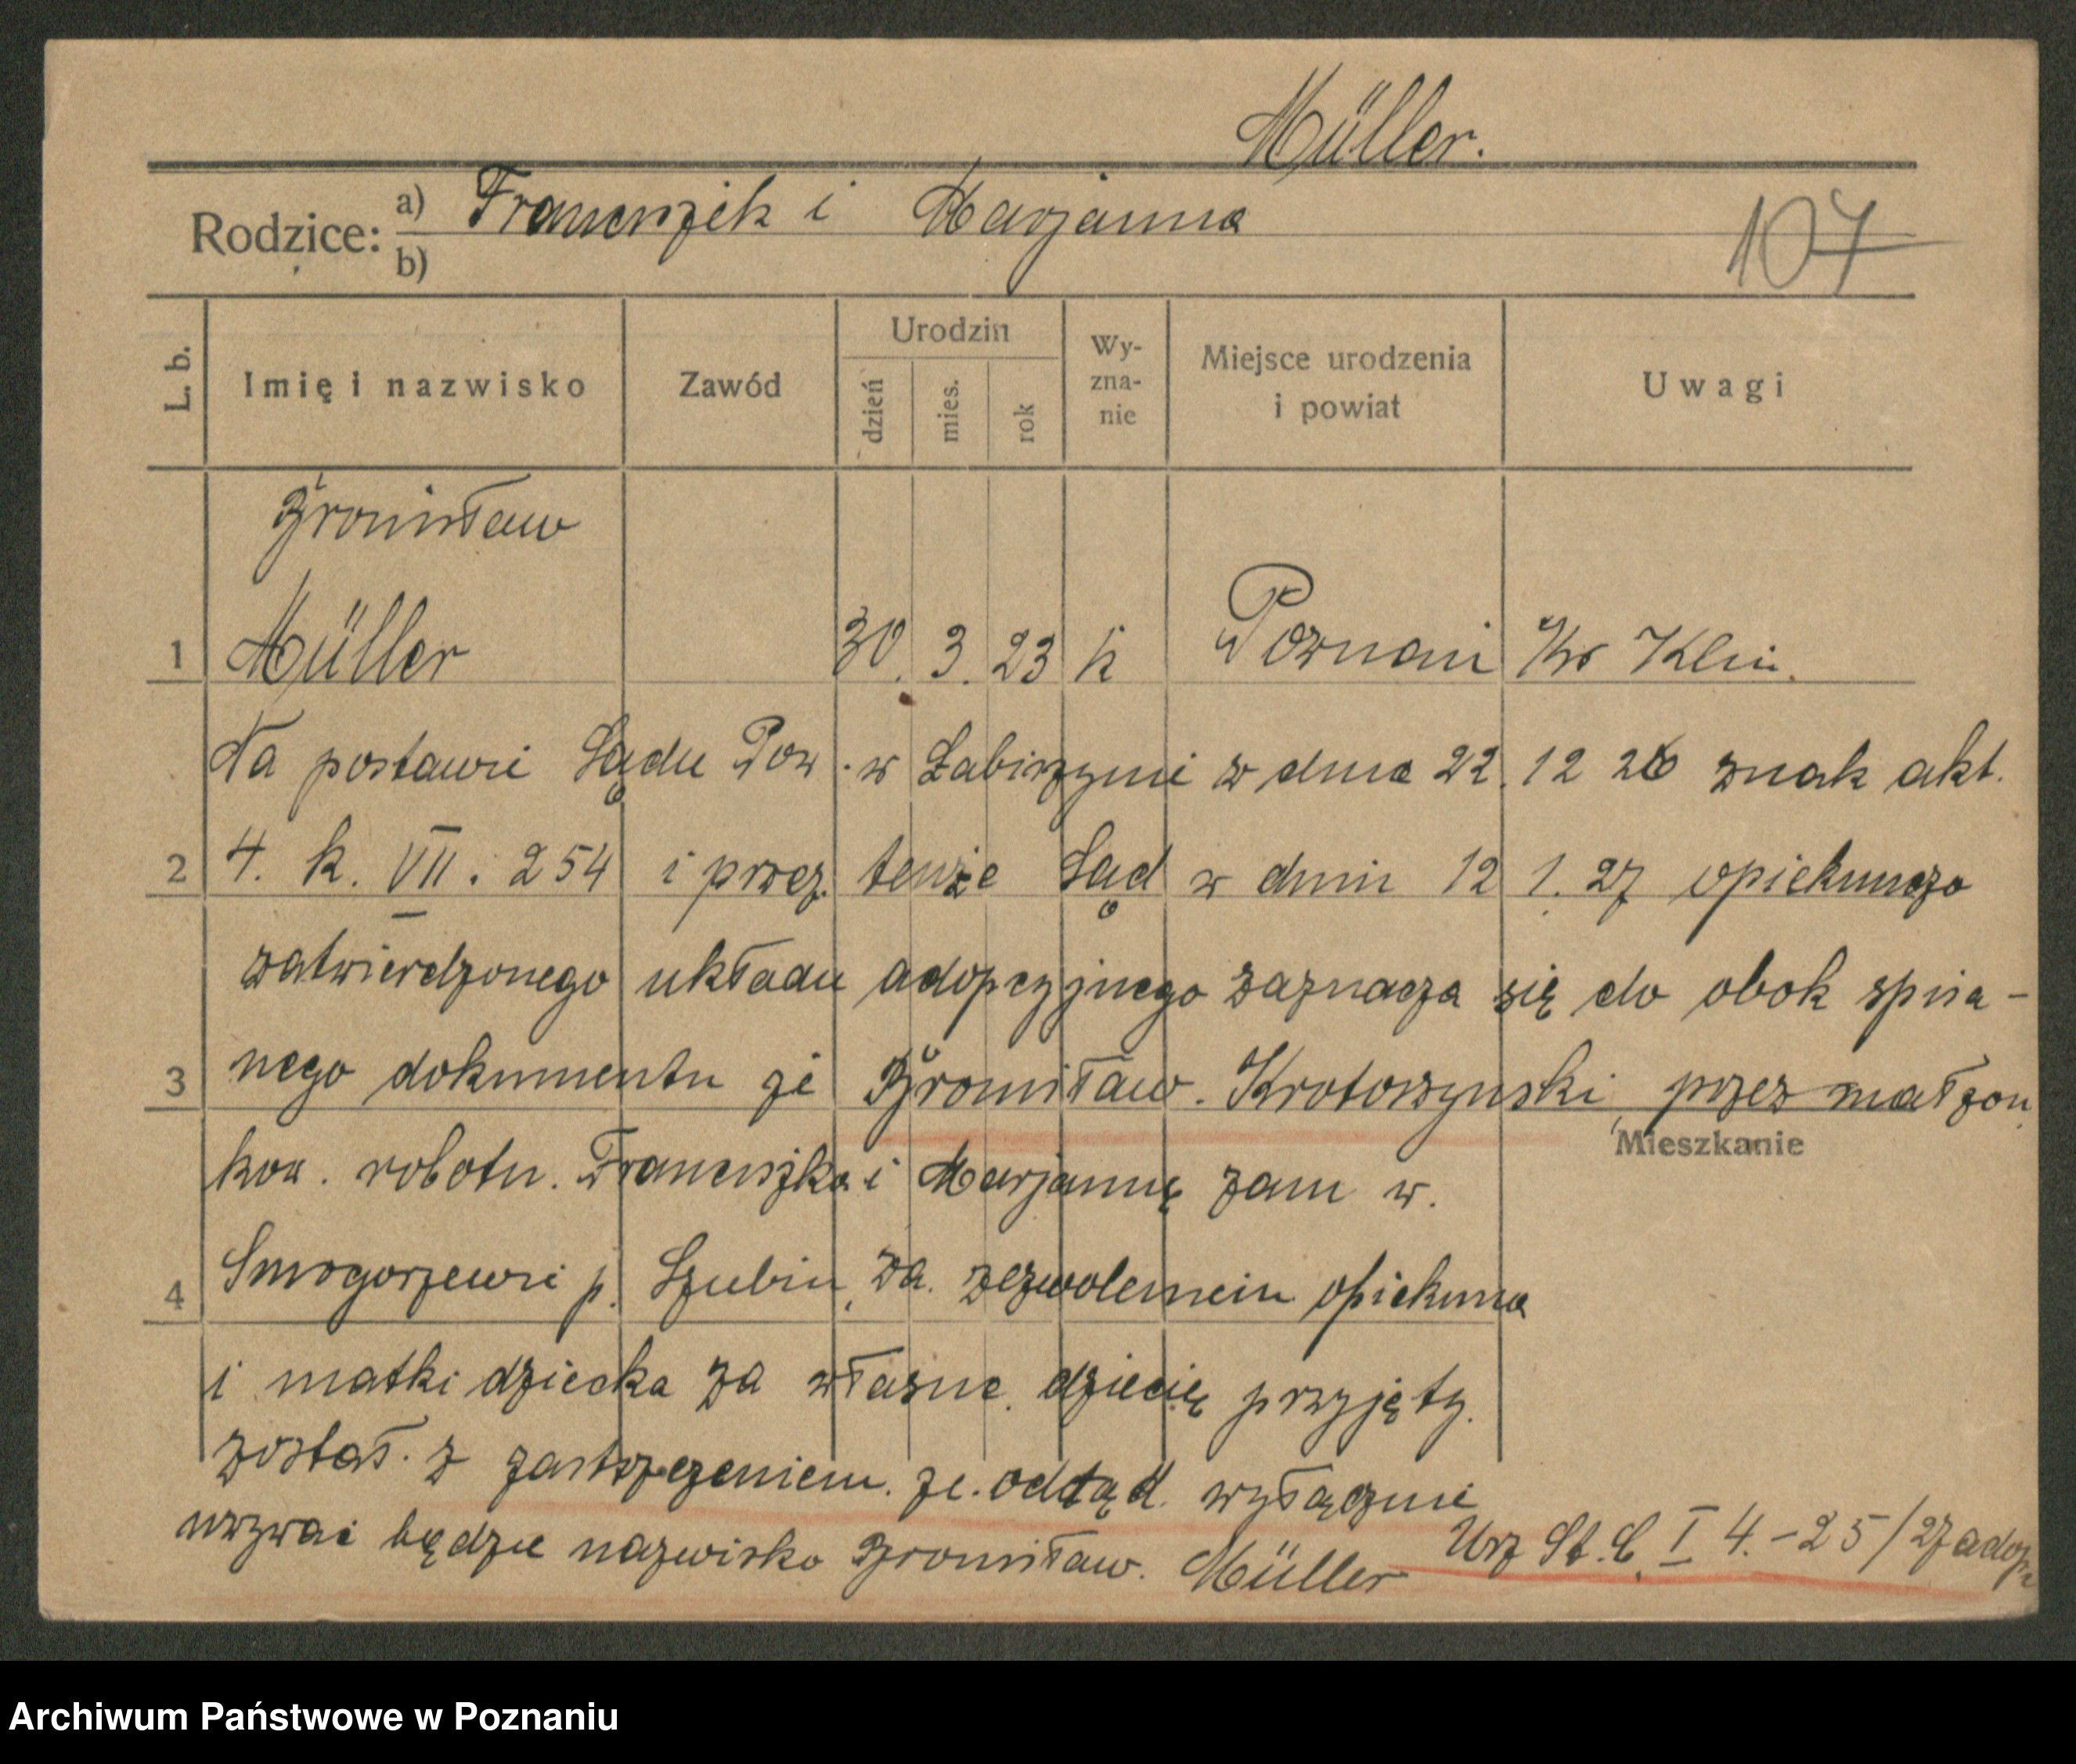 Müller.
Rodzice: a) Franciszek i Marjanna
b)
107
L. b. Imię i nazwisko Zawód Urodzin dzień mies. rok Wy-zna-nie Miejsce urodzenia i powiat Uwagi
Bronisław
1 Müller 30. 3. 23 k Poznań Kr Klin.
Na postawie Sądu Pow. w Łabiszynie z dnia 22. 12 26 znak akt.
2 4. k. VII. 254 i przez. tenże Sąd w dniu 12 1. 27 opiekunczo
zatwierdzonego układu adopcyjnego zaznacza się do obok spisa-
3 nego dokumentu że Bronisław. Krotoszynski przez małżon
Mieszkanie
kow. robotn. Franciszka i Marjannę zam w.
4 Smogorzewie p. Szubin, za. zezwoleniem opiekuna
i matki dziecka za własne. dziecię przyjęty.
został. z zastrzezeniem. że. odtąd. wyłącznie
uzywać będzie nazwisko Bronisław. Müller
Urz St. C. I 4. – 25/27 adop.
Archiwum Państwowe w Poznaniu